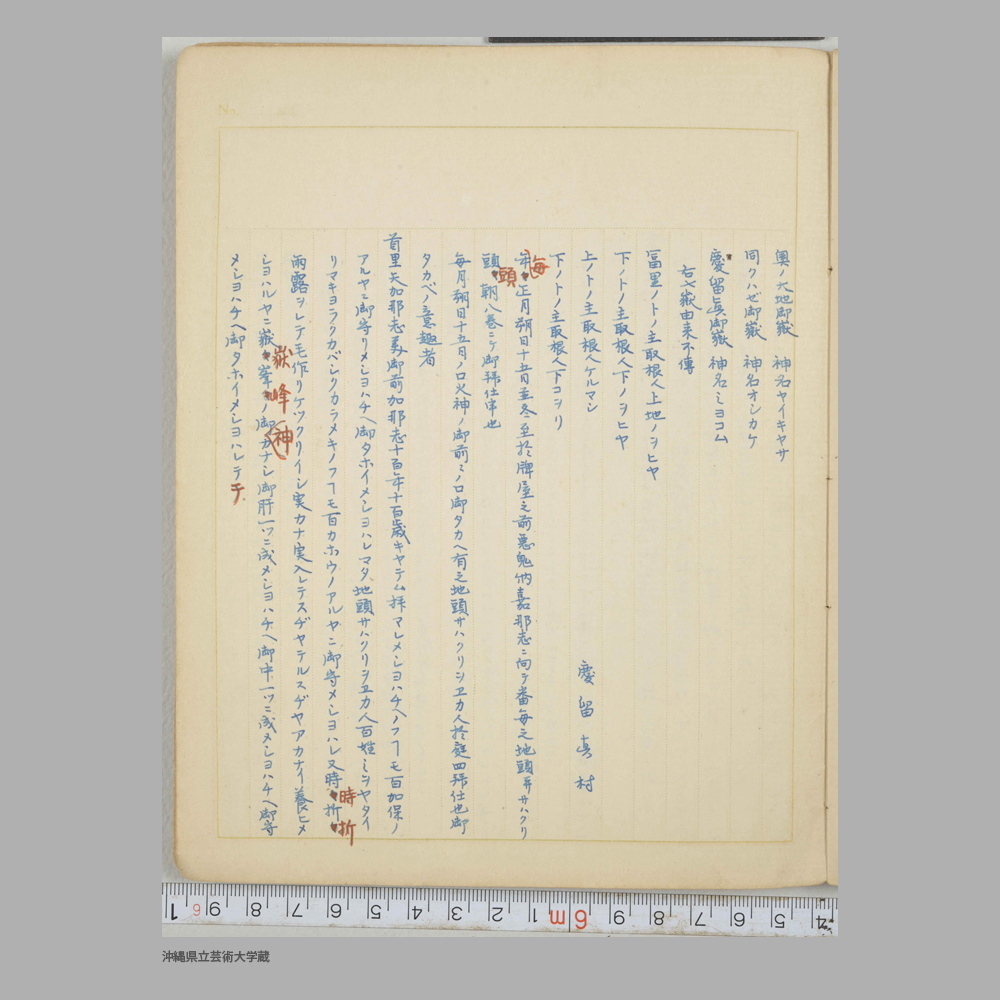 奥ノ大地御嶽 神名ヤイキヤサ
同クハゼ御嶽 神名オシカケ
慶留眞御嶽 神名ミヨコム
右七嶽由来不傳
冨里ノトノ主取根人上地ノシヒヤ
下ノトノ主取根人下ノヲヒヤ
上ノトノ主取根人ケルマシ
慶留眞村
下ノトノ主取根人下コヲリ
毎
年正月朔日十五日並冬至於牌屋之前悪鬼納嘉那志ニ向テ番毎之地頭并サハクリ
頭
頭朝八巻ニケ御拜仕申也
毎月朔日十五日ノロ火神ノ御前ミノロ御タカヘ有之地頭サハクリシヱカ人於庭四拜仕也御
タカベノ意趣者
首里天加那志美御前加那志十百年十百歳キヤテム拝マレメシヨハチヘノフーモ百加保ノ
アルヤニ御守リメシヨハチヘ御タホイメシヨハレマタ地頭サハクリシヱカ人百姓ミシヤタイ
リマキヨラクカバシクカラメキノフーモ百カホウノアルヤニ御守メシヨハレ又時折
時折
雨露ヲレテモ作リケツクリイシ実カナ実入レテスデヤテルスデヤアカナイ養ヒメ
嶽峰(神
シヨハルヤニ嶽々峯々ノ御カナシ御肝一ツニ成メシヨハチヘ御中一ツニ成メシヨハチヘ御守
メシヨハチヘ御タホイメシヨハレテ
チ
No.
1 6 9 8 7 6 5 4 3 2 1 6m 9 8 7 6 5 4
沖縄県立芸術大学蔵